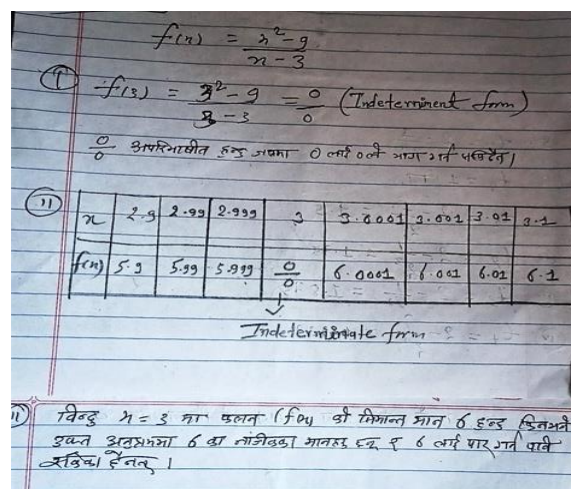 f(x) = x² - 9 / x - 3
(I) f(3) = 3² - 9 / 3 - 3 = 0/0 (Indeterminent form)
0/0 अपरिभाषीत हुन्छ जसमा 0 लाई 0 ले भाग गर्न सकिदैन।
(II)
x 2.9 2.99 2.999 3 3.0001 3.001 3.01 3.1
f(x) 5.9 5.99 5.999 0/0 6.0001 6.001 6.01 6.1
Indeterminate form
विन्दु x = 3 मा फलन (f(x) को सिमान्त मान 6 हुन्छ किनभने
उक्त अनुक्रममा 6 का नजिकका मानहरु छन् र 6 लाई पार गर्न
सकेका छैनन् ।